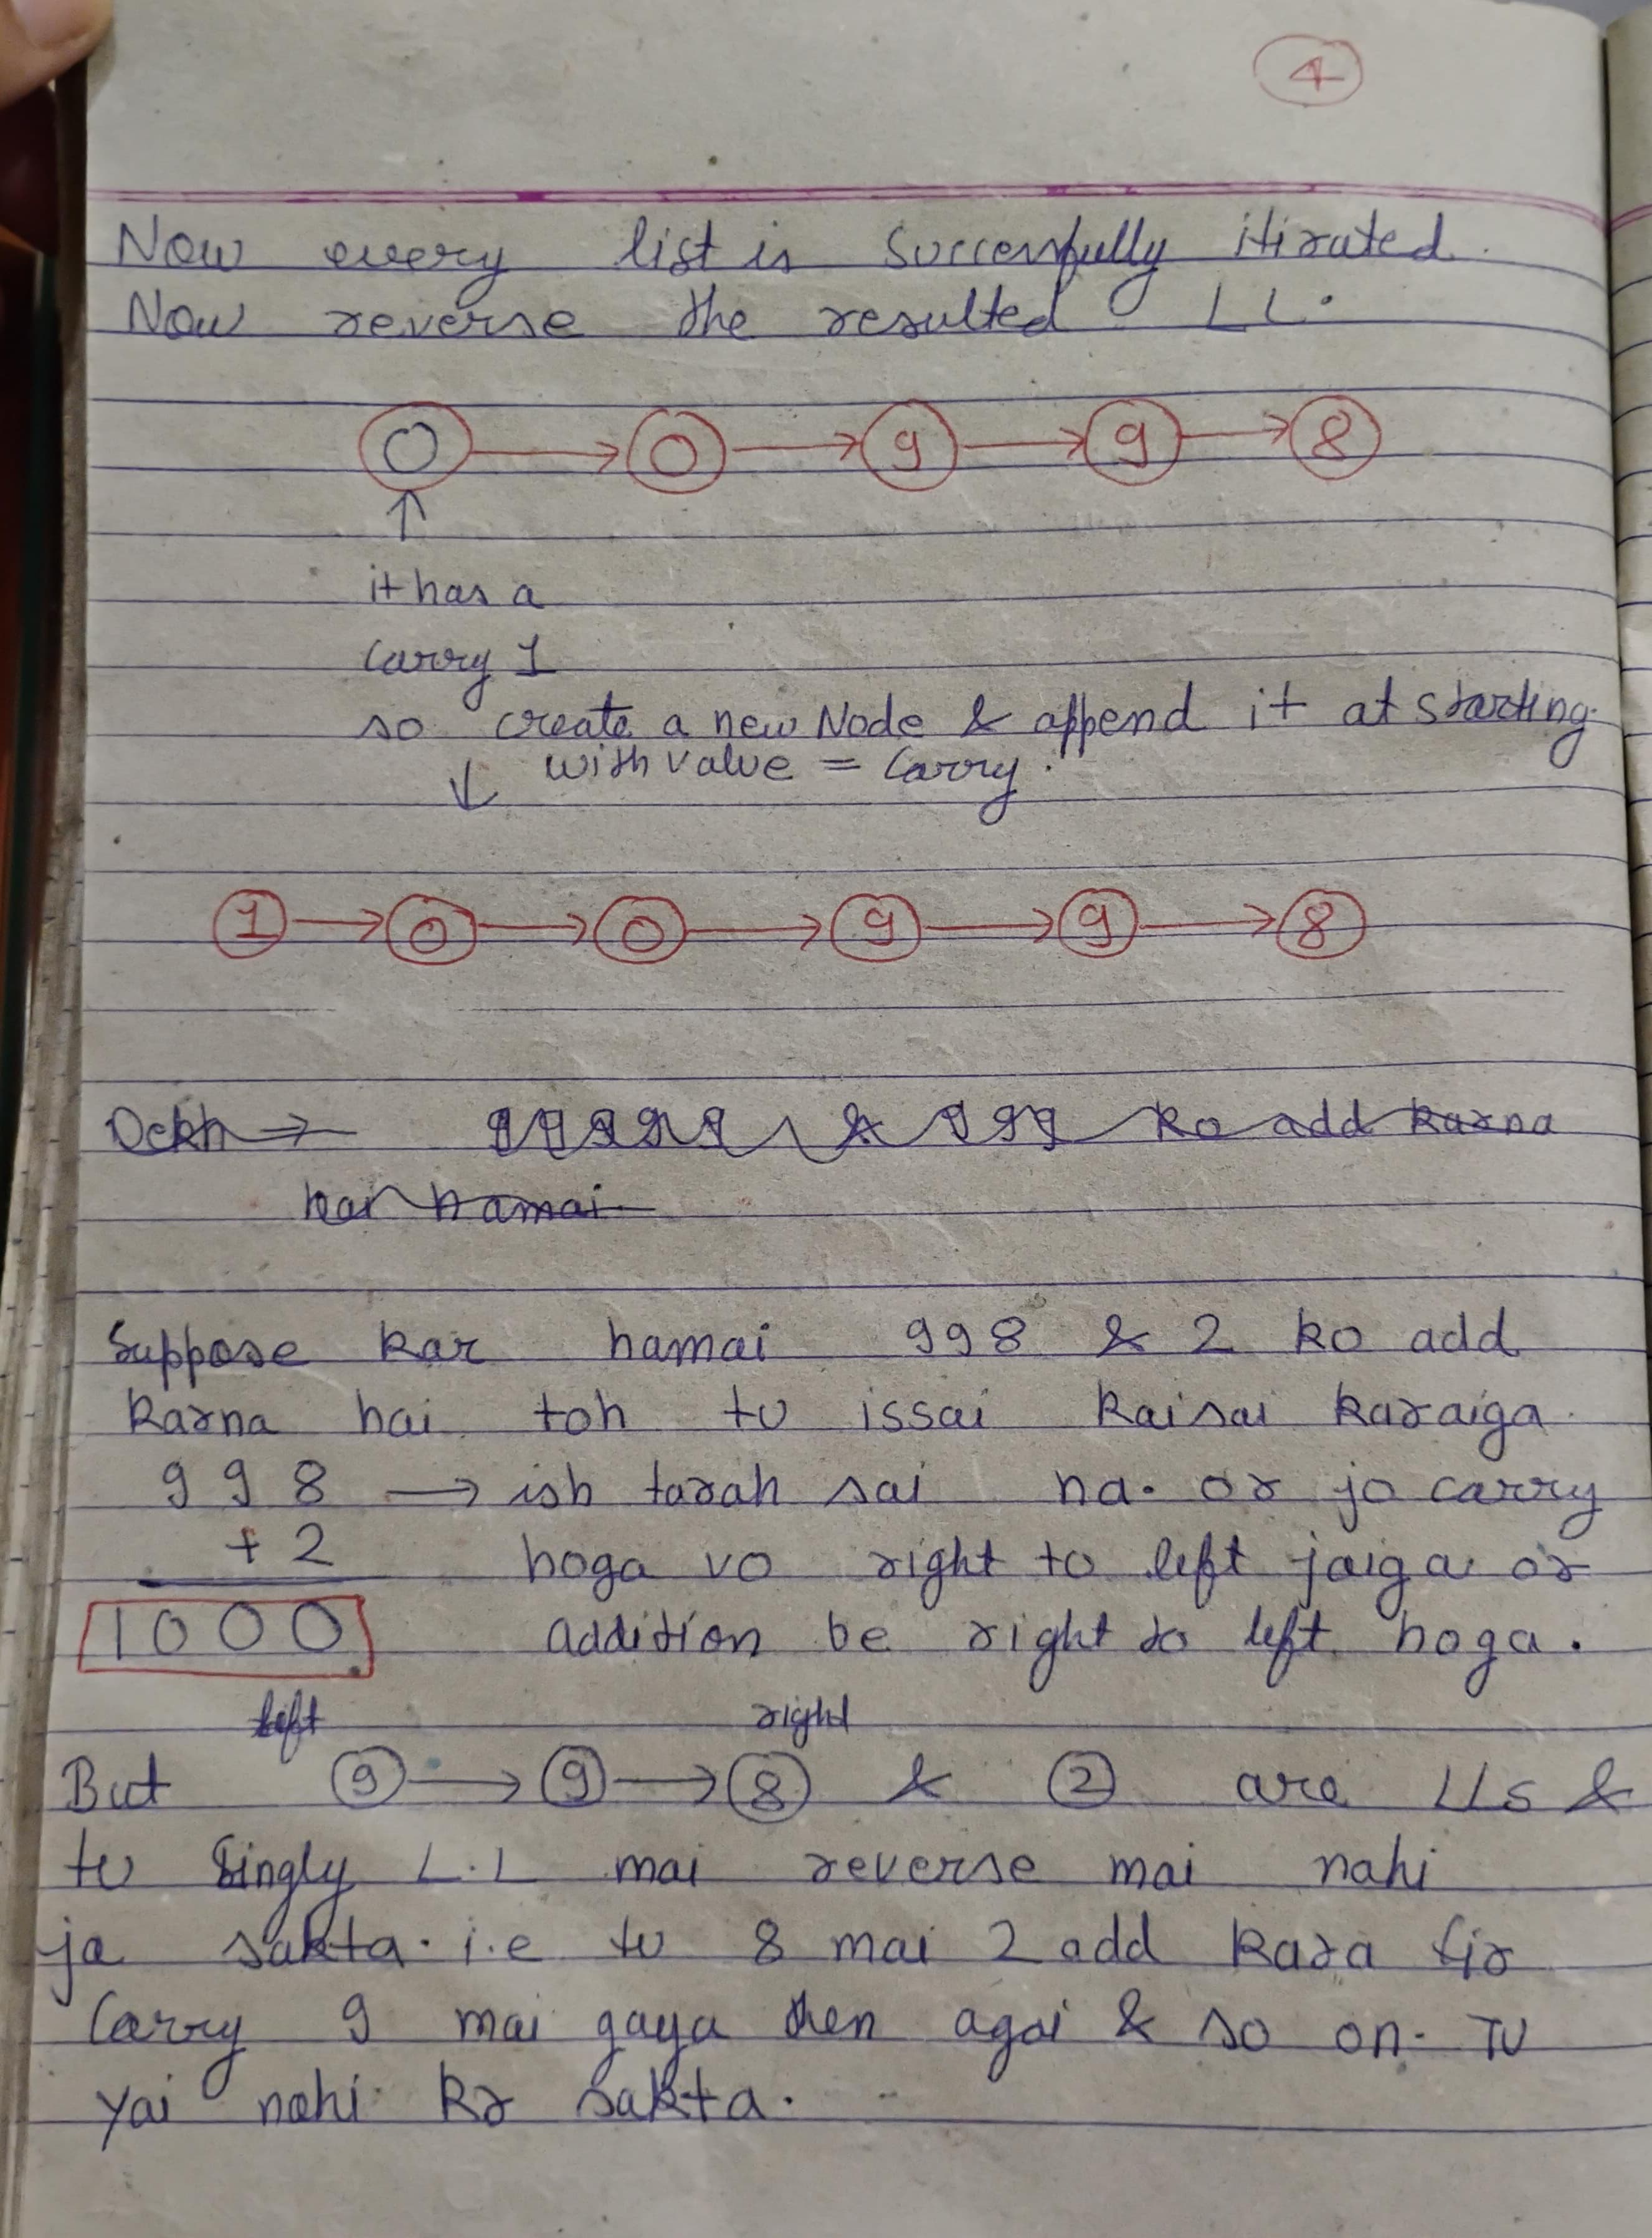 4
Now every list is Successfully itirated.
Now reverse the resulted LL.
0 → 0 → 9 → 9 → 8
↑
it has a
Carry 1
so create a new Node & append it at starting.
↓ with value = Carry.
1 → 0 → 0 → 9 → 9 → 8
Dekh → 99999 & 999 ko add karna
hai hamai
Suppose kar hamai 998 & 2 ko add
karna hai toh tu issai kaisai karaiga
998 → ish tarah sai na. or jo carry
+ 2 hoga vo right to left jaiga or
1000 addition be right to left hoga.
left right
But 9 → 9 → 8 & 2 are LLs &
tu Singly L.L mai reverse mai nahi
ja sakta. i.e tu 8 mai 2 add kara fir
Carry 9 mai gaya then agai & so on. TU
Yai nahi kr sakta.